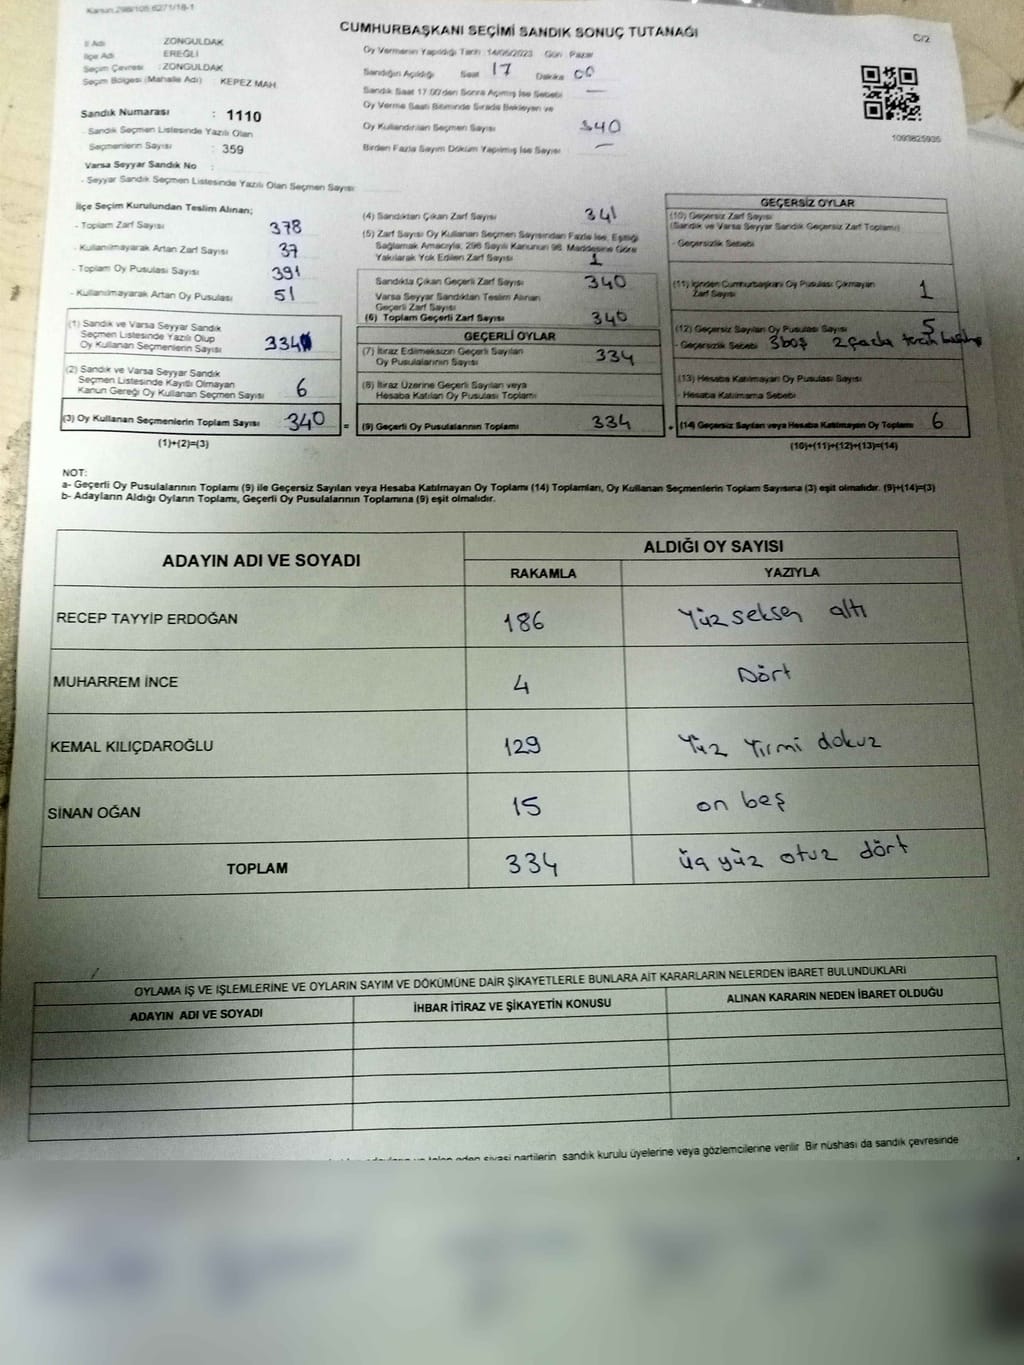 Kanun:298/105,6271/18-1
CUMHURBAŞKANI SEÇİMİ SANDIK SONUÇ TUTANAĞI
C/2
İl Adı : ZONGULDAK
İlçe Adı : EREĞLİ
Seçim Çevresi : ZONGULDAK
Seçim Bölgesi (Mahalle Adı) : KEPEZ MAH.
Oy Vermenin Yapıldığı Tarih : 14/05/2023 Gün : Pazar
Sandığın Açıldığı Saat 17 Dakika 00
Sandık Saat 17:00'den Sonra Açılmış İse Sebebi —
Oy Verme Saati Bitiminde Sırada Bekleyen ve
Oy Kullandırılan Seçmen Sayısı 340
Birden Fazla Sayım Döküm Yapılmış İse Sayısı —
1093825935
Sandık Numarası : 1110
- Sandık Seçmen Listesinde Yazılı Olan
Seçmenlerin Sayısı : 359
Varsa Seyyar Sandık No :
- Seyyar Sandık Seçmen Listesinde Yazılı Olan Seçmen Sayısı
İlçe Seçim Kurulundan Teslim Alınan;
- Toplam Zarf Sayısı 378
- Kullanılmayarak Artan Zarf Sayısı 37
- Toplam Oy Pusulası Sayısı 391
- Kullanılmayarak Artan Oy Pusulası 51
(1) Sandık ve Varsa Seyyar Sandık
Seçmen Listesinde Yazılı Olup
Oy Kullanan Seçmenlerin Sayısı 334
(2) Sandık ve Varsa Seyyar Sandık
Seçmen Listesinde Kayıtlı Olmayan
Kanun Gereği Oy Kullanan Seçmen Sayısı 6
(3) Oy Kullanan Seçmenlerin Toplam Sayısı 340 =
(1)+(2)=(3)
(4) Sandıktan Çıkan Zarf Sayısı 341
(5) Zarf Sayısı Oy Kullanan Seçmen Sayısından Fazla İse, Eşitliği
Sağlamak Amacıyla, 298 Sayılı Kanunun 98. Maddesine Göre
Yakılarak Yok Edilen Zarf Sayısı 1
Sandıkta Çıkan Geçerli Zarf Sayısı 340
Varsa Seyyar Sandıktan Teslim Alınan
Geçerli Zarf Sayısı
(6) Toplam Geçerli Zarf Sayısı 340
GEÇERLİ OYLAR
(7) İtiraz Edilmeksizin Geçerli Sayılan
Oy Pusulalarının Sayısı 334
(8) İtiraz Üzerine Geçerli Sayılan veya
Hesaba Katılan Oy Pusulası Toplamı
(9) Geçerli Oy Pusulalarının Toplamı 334 +
GEÇERSİZ OYLAR
(10) Geçersiz Zarf Sayısı
(Sandık ve Varsa Seyyar Sandık Geçersiz Zarf Toplamı)
- Geçersizlik Sebebi
(11) İçinden Cumhurbaşkanı Oy Pusulası Çıkmayan
Zarf Sayısı 1
(12) Geçersiz Sayılan Oy Pusulası Sayısı 5
- Geçersizlik Sebebi 3 boş 2
(13) Hesaba Katılmayan Oy Pusulası Sayısı
- Hesaba Katılmama Sebebi
(14) Geçersiz Sayılan veya Hesaba Katılmayan Oy Toplamı 6
(10)+(11)+(12)+(13)=(14)
NOT:
a- Geçerli Oy Pusulalarının Toplamı (9) ile Geçersiz Sayılan veya Hesaba Katılmayan Oy Toplamı (14) Toplamları, Oy Kullanan Seçmenlerin Toplam Sayısına (3) eşit olmalıdır. (9)+(14)=(3)
b- Adayların Aldığı Oyların Toplamı, Geçerli Oy Pusulalarının Toplamına (9) eşit olmalıdır.
ADAYIN ADI VE SOYADI
ALDIĞI OY SAYISI
RAKAMLA YAZIYLA
RECEP TAYYİP ERDOĞAN 186 Yüz seksen altı
MUHARREM İNCE 4 Dört
KEMAL KILIÇDAROĞLU 129 Yüz Yirmi dokuz
SİNAN OĞAN 15 on beş
TOPLAM 334 üç yüz otuz dört
OYLAMA İŞ VE İŞLEMLERİNE VE OYLARIN SAYIM VE DÖKÜMÜNE DAİR ŞİKAYETLERLE BUNLARA AİT KARARLARIN NELERDEN İBARET BULUNDUKLARI
ADAYIN ADI VE SOYADI İHBAR İTİRAZ VE ŞİKAYETİN KONUSU ALINAN KARARIN NEDEN İBARET OLDUĞU
eden siyasi partilerin sandık kurulu üyelerine veya gözlemcilerine verilir. Bir nüshası da sandık çevresinde